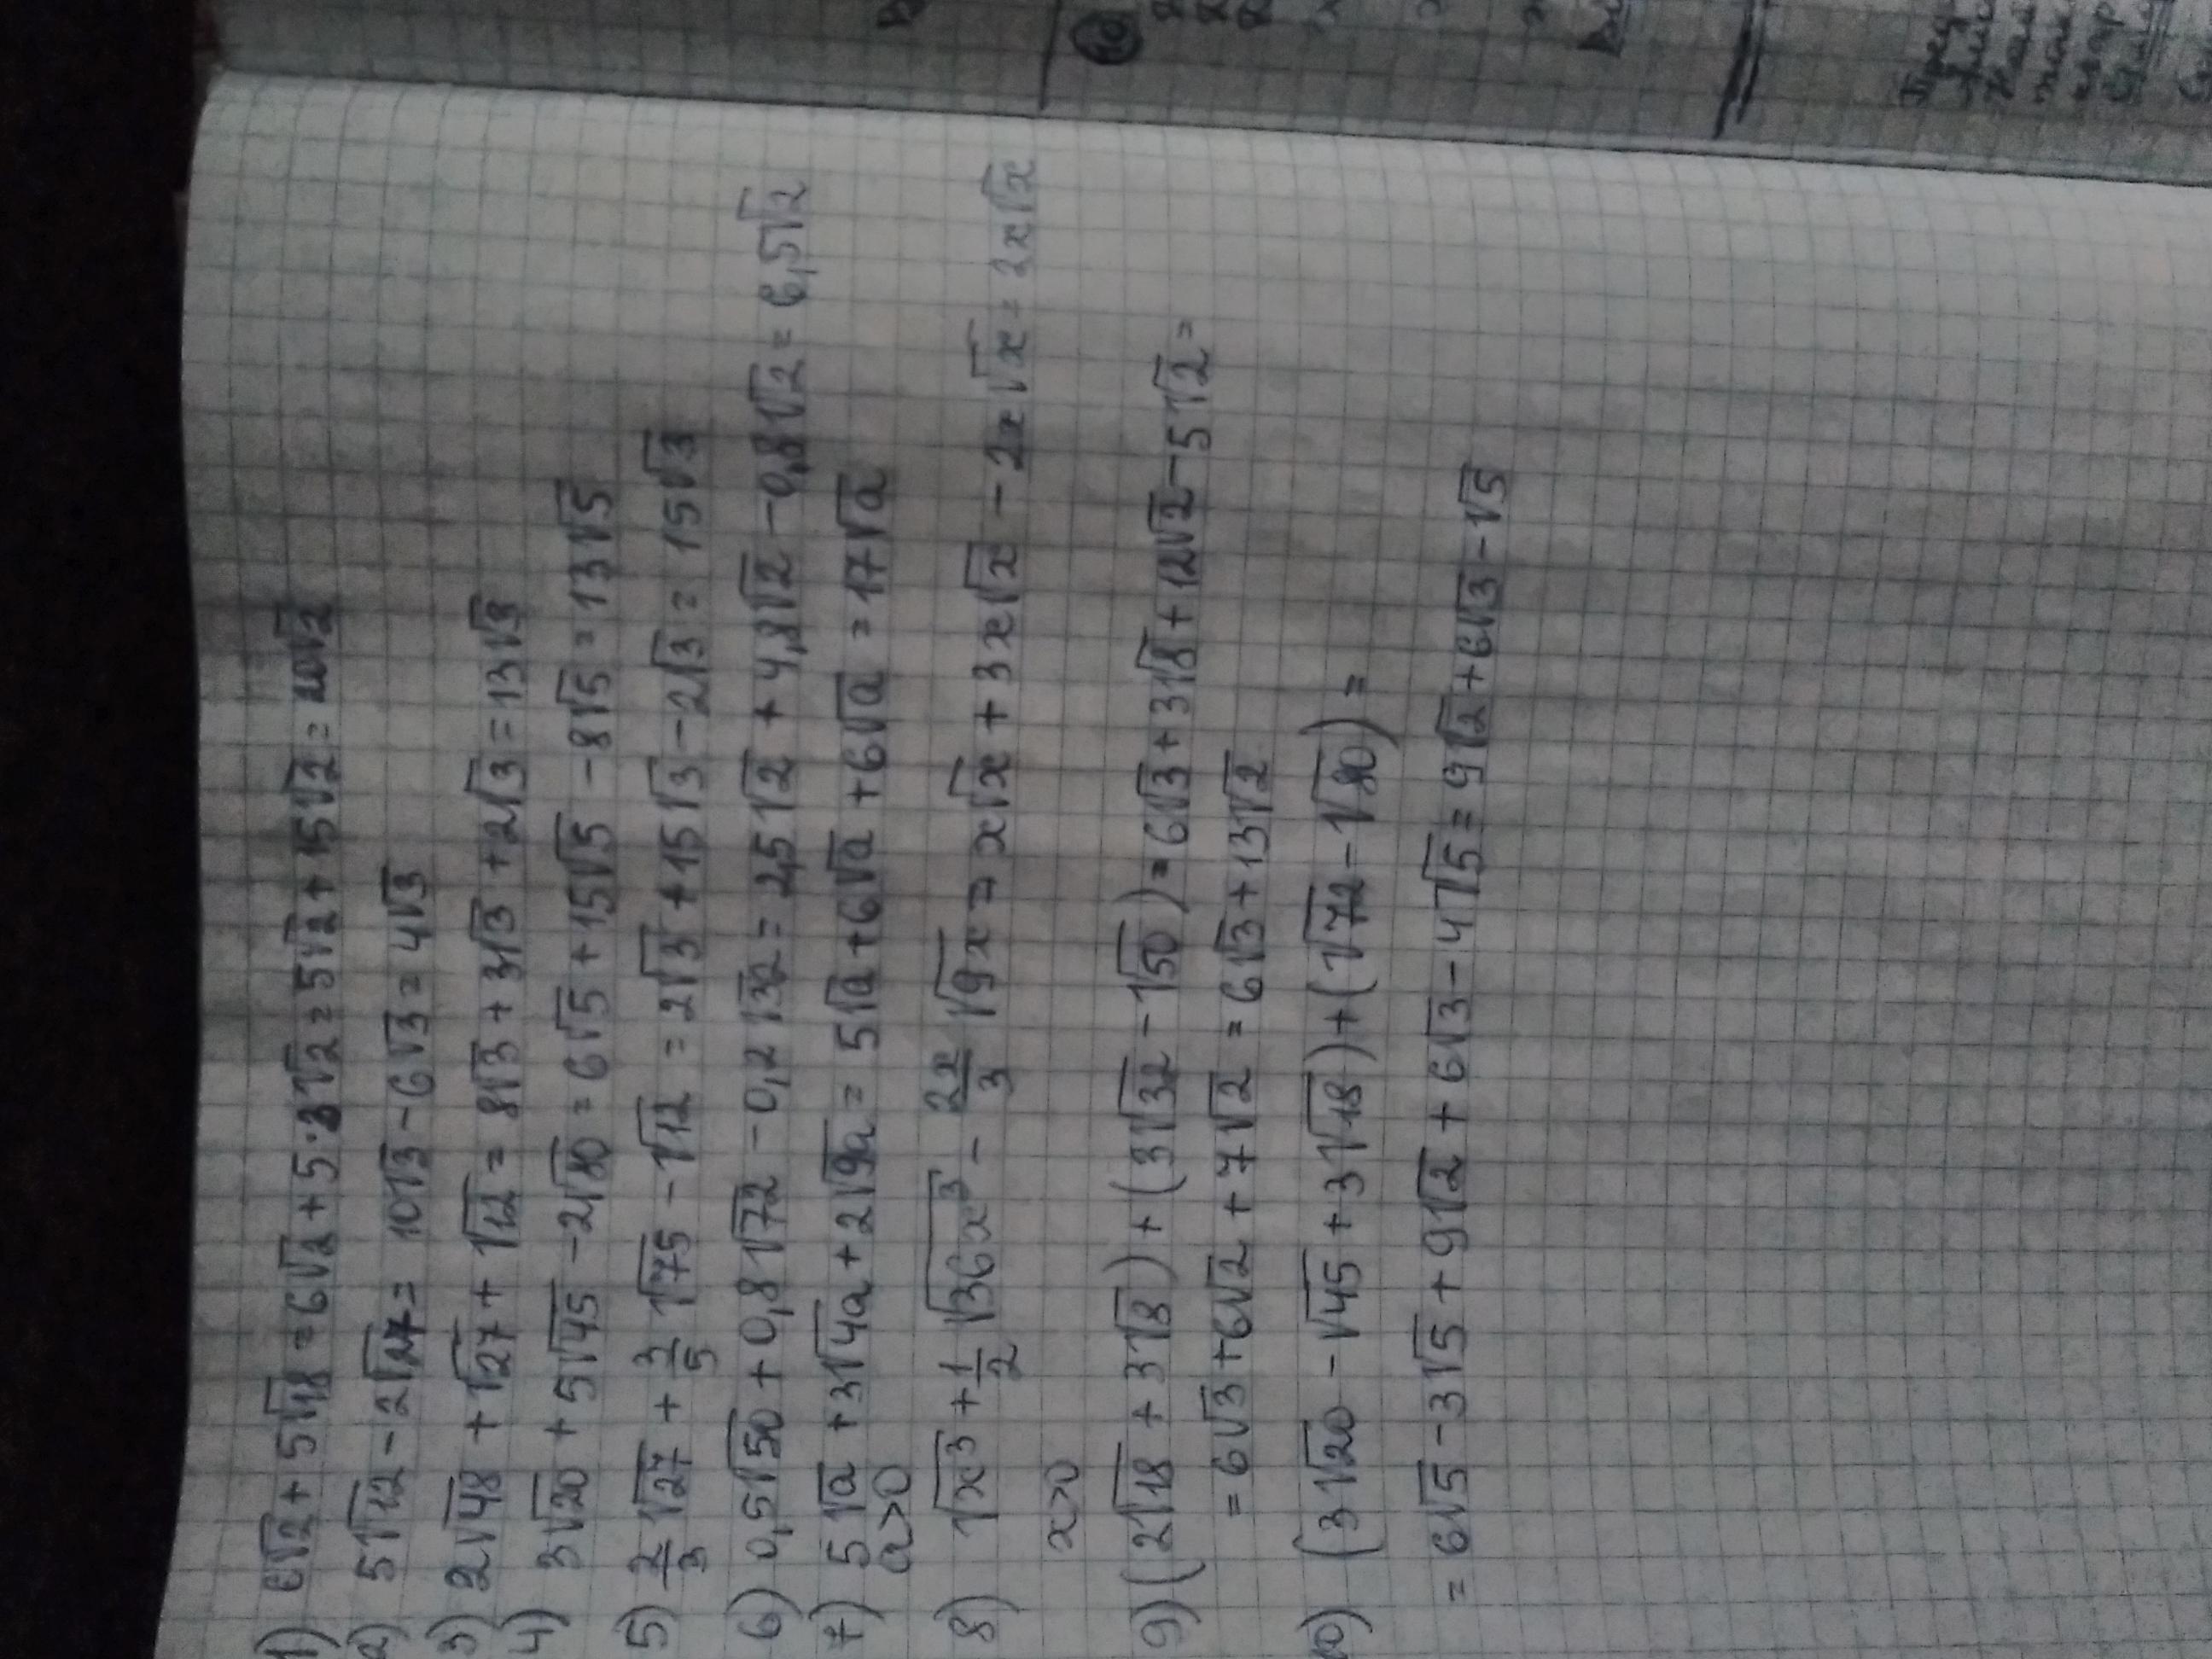 1) 6√2 + 5√18 = 6√2 + 5·3√2 = 5√2 + 15√2 = 20√2
2) 5√12 - 2√27 = 10√3 - 6√3 = 4√3
3) 2√48 + √27 + √12 = 8√3 + 3√3 + 2√3 = 13√3
4) 3√20 + 5√45 - 2√80 = 6√5 + 15√5 - 8√5 = 13√5
5) 2/3 √27 + 3/5 √75 - √12 = 2√3 + 15√3 - 2√3 = 15√3
6) 0,5√50 + 0,8√72 - 0,2√32 = 2,5√2 + 4,8√2 - 0,8√2 = 6,5√2
7) 5√a + 3√4a + 2√9a = 5√a + 6√a + 6√a = 17√a
a>0
8) √x³ + 1/2 √36x³ - 2x/3 √9x = x√x + 3x√x - 2x√x = 2x√x
x>0
9) (2√18 + 3√8) + (3√32 - √50) = 6√3 + 3√8 + 12√2 - 5√2 =
= 6√3 + 6√2 + 7√2 = 6√3 + 13√2
10) (3√20 - √45 + 3√18) + (√72 - √80) =
= 6√5 - 3√5 + 9√2 + 6√3 - 4√5 = 9√2 + 6√3 - √5